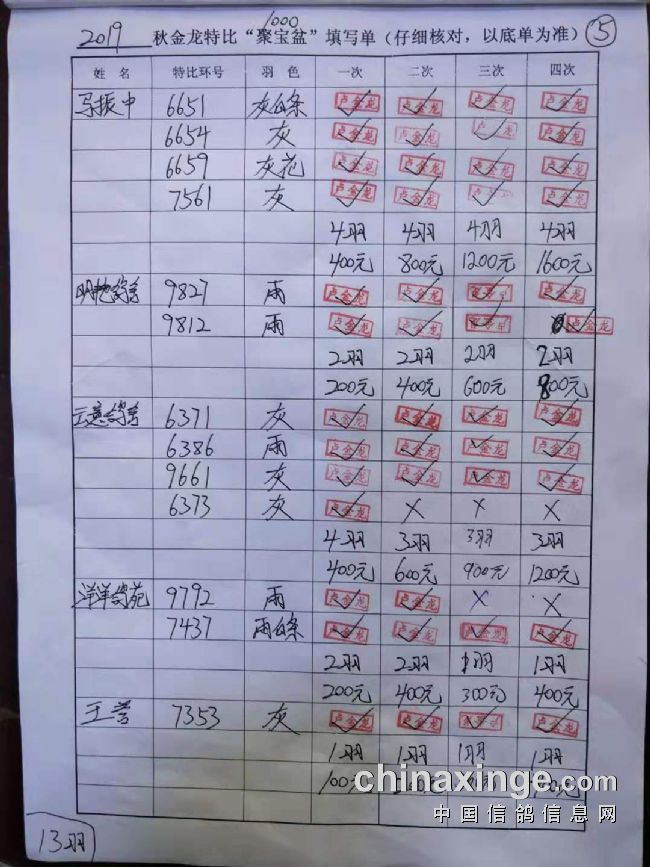 1000
2019 秋金龙特比“聚宝盆”填写单（仔细核对，以底单为准） 5
姓 名 特比环号 羽 色 一次 二次 三次 四次
马振中 6651 灰白条 卢金龙 卢金龙 卢金龙 卢金龙
6654 灰 卢金龙 卢金龙 卢金龙 卢金龙
6659 灰花 卢金龙 卢金龙 卢金龙 卢金龙
7561 灰 卢金龙 卢金龙 卢金龙
4羽 4羽 4羽 4羽
400元 800元 1200元 1600元
9827 雨 卢金龙 卢金龙 卢金龙
9812 雨 卢金龙 卢金龙 卢金龙
2羽 2羽 2羽 2羽
200元 400元 600元 800元
6371 灰 卢金龙 卢金龙 卢金龙 卢金龙
6386 雨 卢金龙 卢金龙 卢金龙 卢金龙
9661 灰 卢金龙 卢金龙 卢金龙 卢金龙
6373 灰 卢金龙 × × ×
4羽 3羽 3羽 3羽
400元 600元 900元 1200元
洋洋鸽苑 9792 雨 卢金龙 卢金龙 × ×
7437 雨白条 卢金龙 卢金龙 卢金龙 卢金龙
2羽 2羽 1羽 1羽
200元 400元 300元 400元
王誉 7353 灰 卢金龙 卢金龙 卢金龙
1羽 1羽 1羽 1羽
100元
chinaxinge.com
中国信鸽信息网
13羽